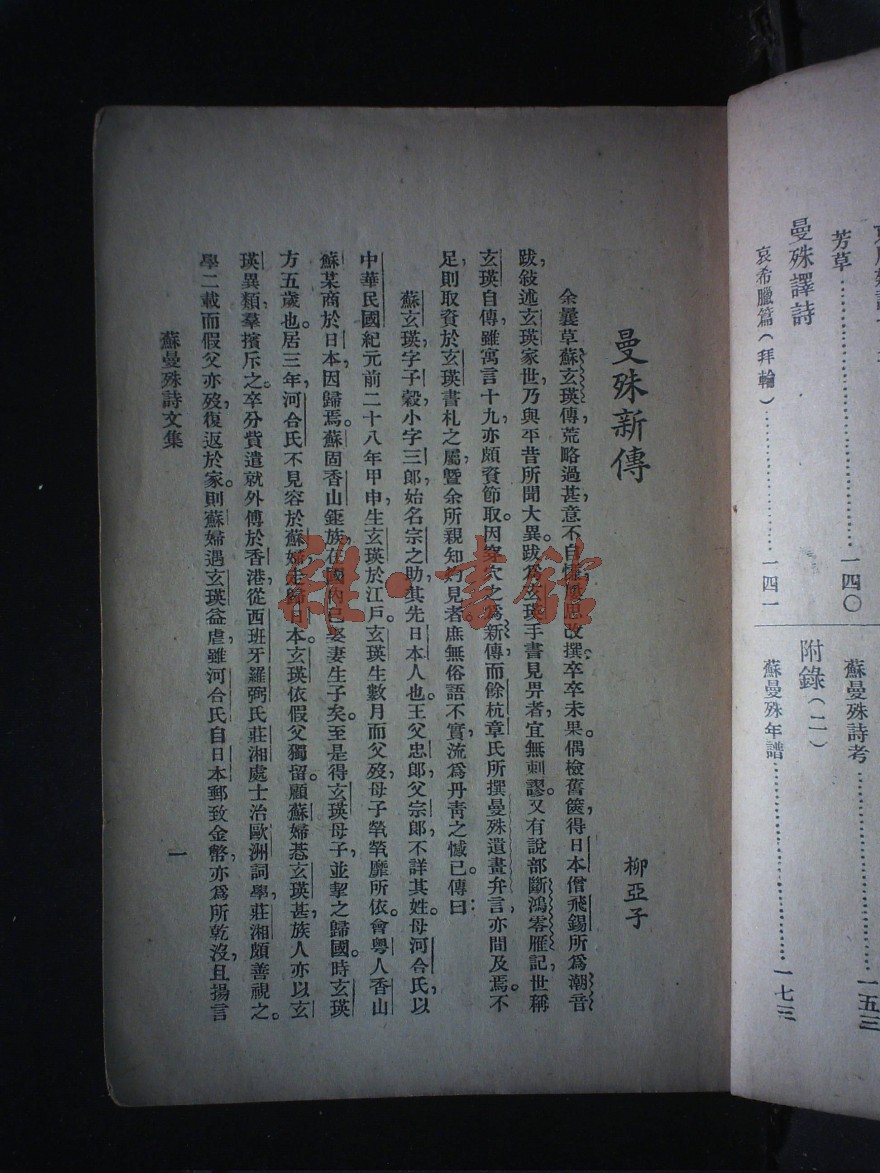 芳草……………一四〇
曼殊譯詩
哀希臘篇(拜輪)……………一四一
蘇曼殊詩考……………一五三
附錄(二)
蘇曼殊年譜……………一七三
曼殊新傳
柳亞子
余曩草蘇玄瑛傳,荒略過甚,意不自慊,屢思改撰;卒卒未果。偶檢舊篋,得日本僧飛錫所爲潮音
跋,敍述玄瑛家世,乃與平昔所聞大異。跋爲玄瑛手書見畀者,宜無剌謬。又有說部斷鴻零雁記,世稱
玄瑛自傳,雖寓言十九,亦頗資節取。因穿穴之爲新傳,而餘杭章氏所撰曼殊遺畫弁言,亦間及焉。不
足,則取資於玄瑛書札之屬,曁余所親知灼見者。庶無俗語不實,流爲丹靑之憾已。傳曰:
蘇玄瑛,字子穀,小字三郎,始名宗之助,其先日本人也。王父忠郎,父宗郎,不詳其姓。母河合氏,以
中華民國紀元前二十八年甲申,生玄瑛於江戶。玄瑛生數月而父歿,母子煢煢靡所依。會粵人香山
蘇某商於日本,因歸焉。蘇固香山鉅族,在國內已娶妻生子矣。至是得玄瑛母子,並挈之歸國。時玄瑛
方五歲也。居三年,河合氏不見容於蘇婦,走歸日本。玄瑛依假父獨留。顧蘇婦惎玄瑛甚,族人亦以玄
瑛異類,羣擯斥之。卒分貲遣就外傅於香港,從西班牙羅弼氏莊湘處士治歐洲詞學,莊湘頗善視之。
學二載而假父亦歿,復返於家。則蘇婦遇玄瑛益虐,雖河合氏自日本郵致金幣,亦爲所乾沒,且揚言
蘇曼殊詩文集
一
雜·書館